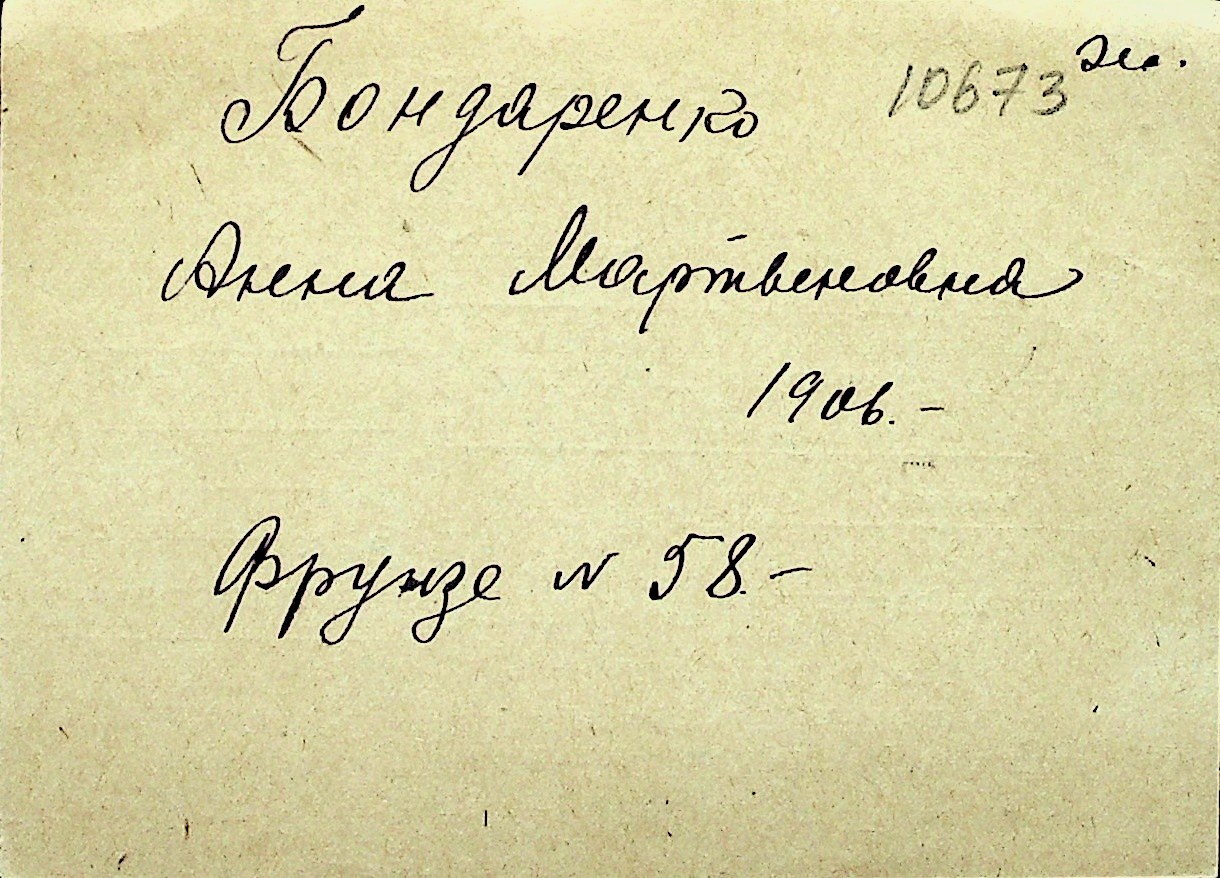 Бондаренко 10673 эк.
Анна Мартыновна
1906. –
Фрунзе N 58. –